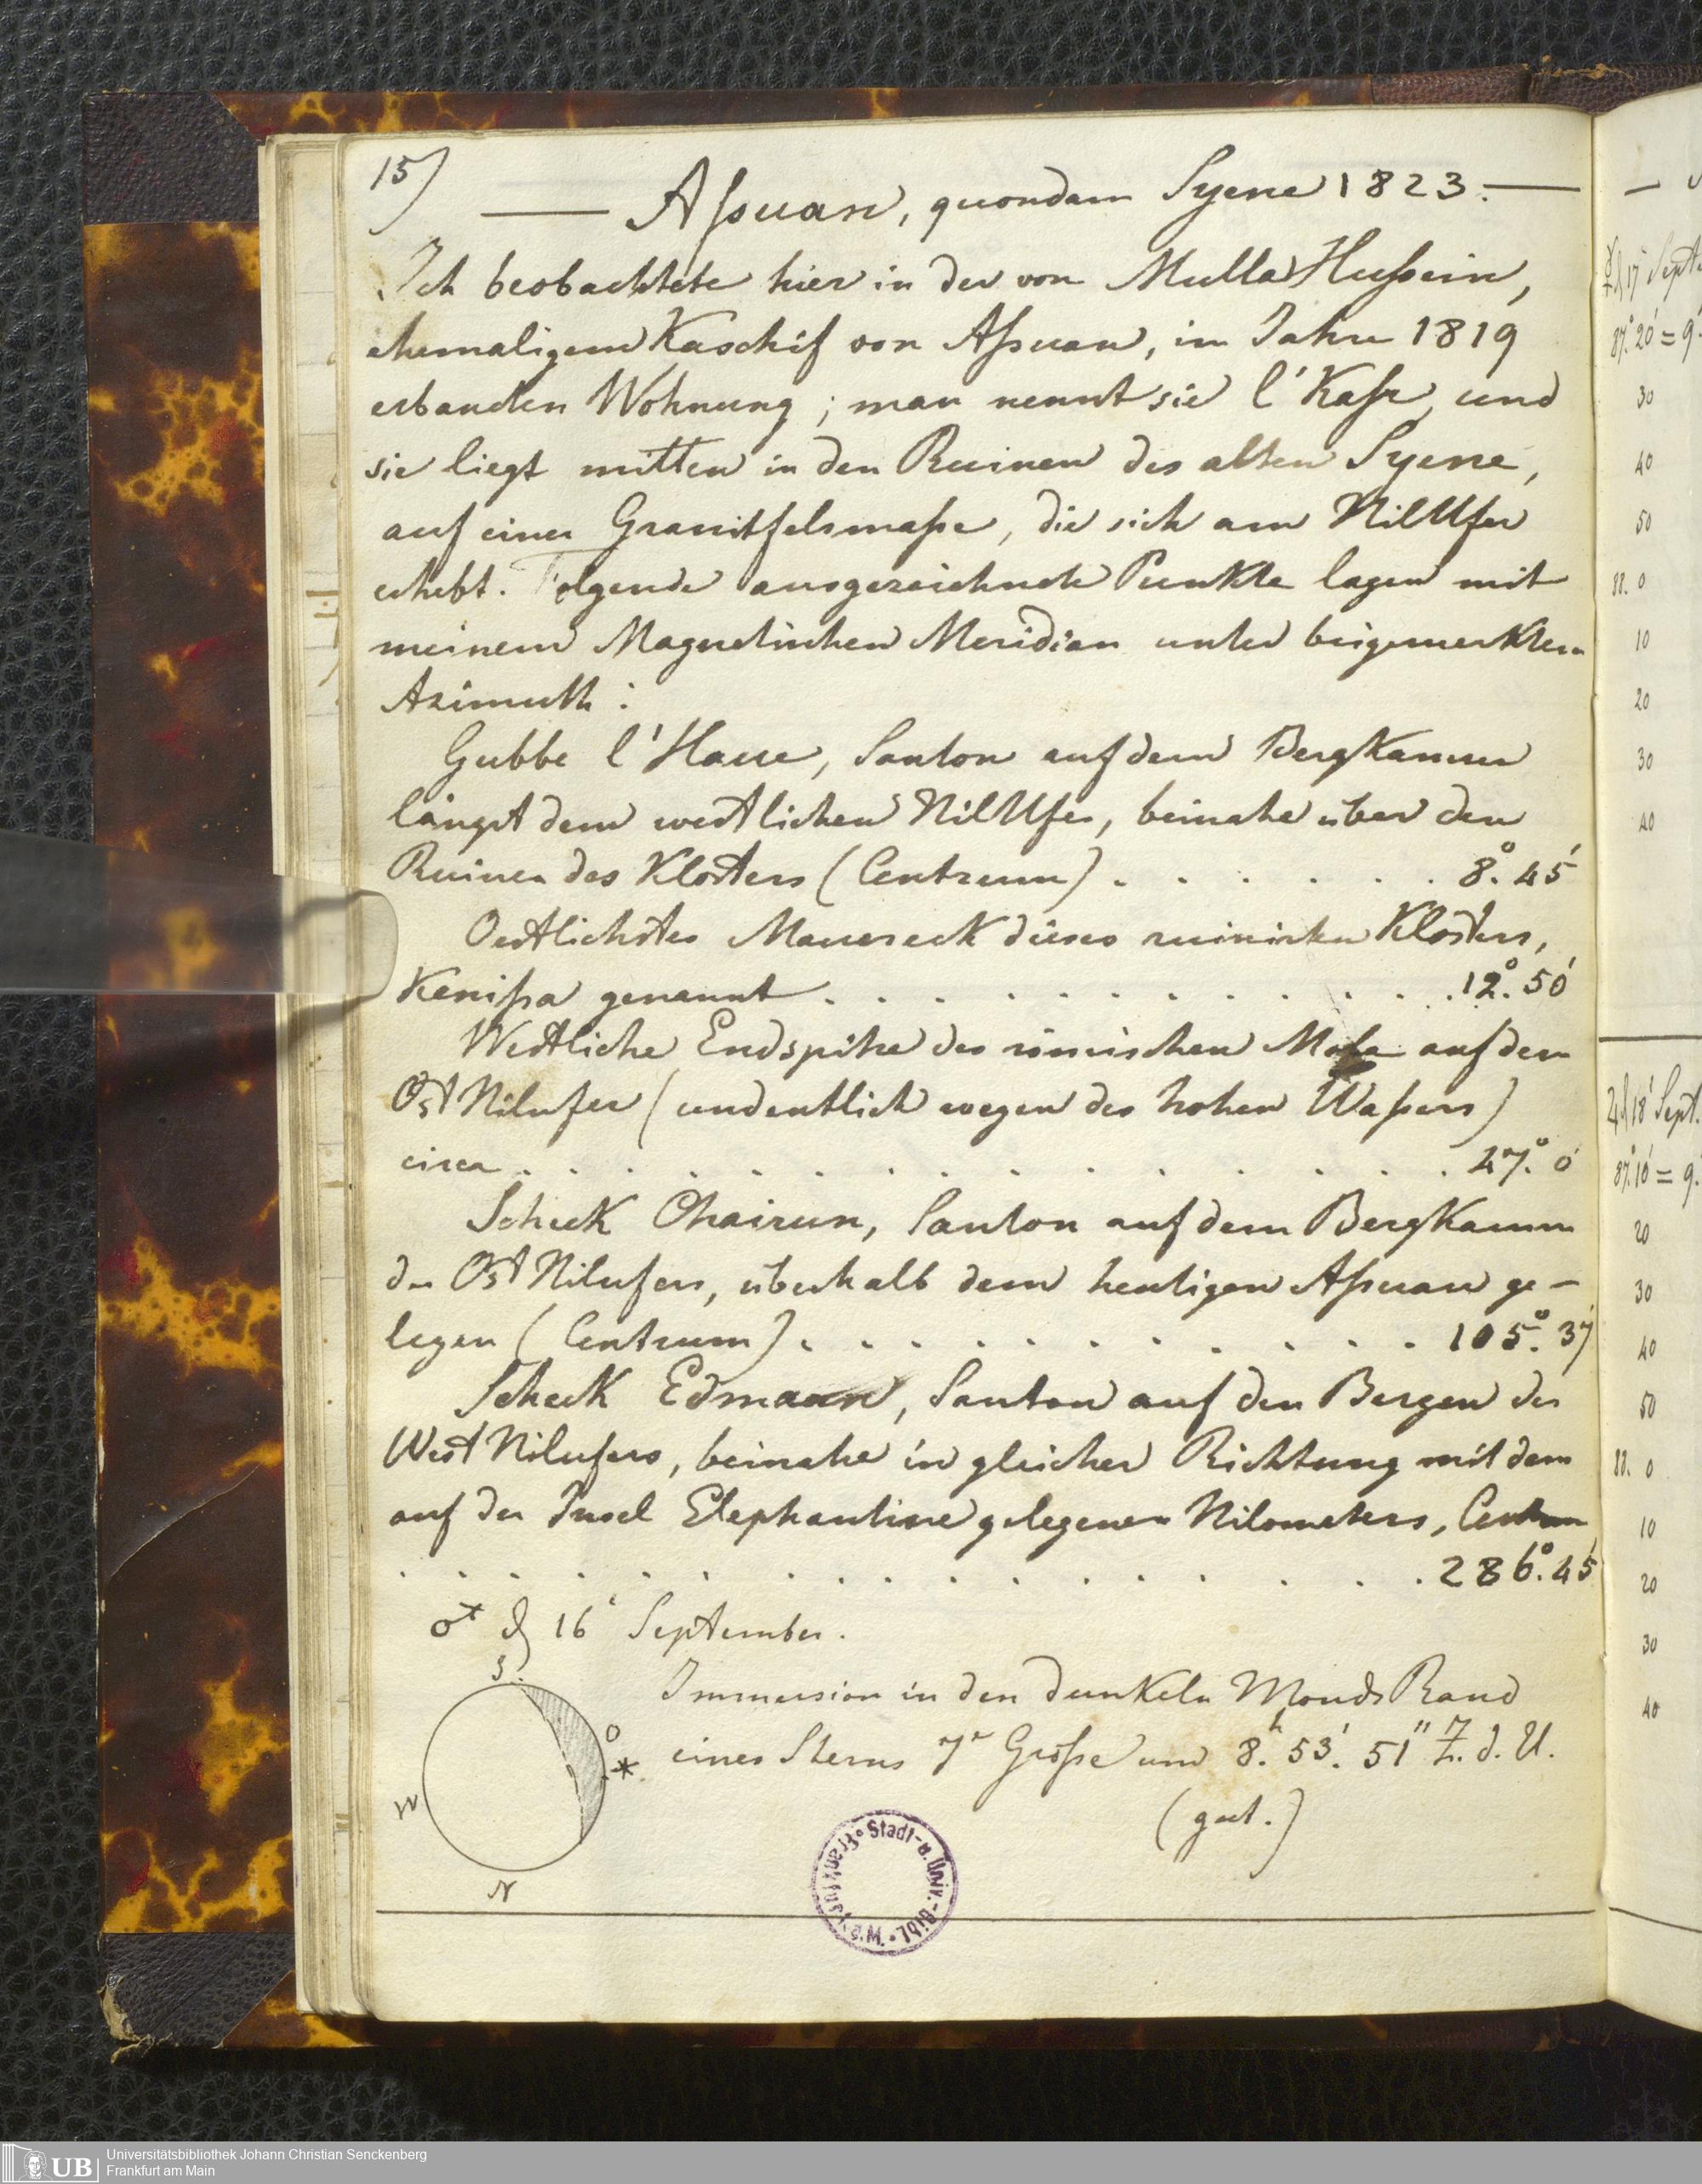 15)
— Assuan, quondam Syene 1823. —
Ich beobachtete hier in der von Mulla Hussein,
ehemaligem Kaschif von Assuan, im Jahre 1819
erbauten Wohnung; man nennt sie l'Kasr, und
sie liegt mitten in den Ruinen des alten Syene,
auf einer Granitfelsmasse, die sich am NilUfer
erhebt. Folgende ausgezeichnete Punkte lagen mit
meinem Magnetischen Meridian unter beigemerktem
Azimuth:
Gubbe l'Haue, Santon auf dem BergKamm
längst dem westlichen NilUfer, beinahe über den
Ruinen des Klosters (Centrum) . . . . . . 8.° 45'
Oestlichstes Mauereck dieses ruinirten Klosters,
Kenissa genannt . . . . . . . . . . . . 12.° 50'
Westliche Endspitze des römischen auf dem
Ost Nilufer (undeutlich wegen des hohen Wassers)
circa . . . . . . . . . . . . . . . . 27.° 0'
Scheck Chairun, Santon auf dem BergKamm
des Ost Nilufers, überhalb dem heutigen Assuan ge-
legen (Centrum) . . . . . . . . . . . 105.° 37'
Scheck Edmann, Santon auf den Bergen des
West Nilufers, beinahe in gleicher Richtung mit dem
auf der Insel Elephantine gelegenen Nilometers, Centrum
. . . . . . . . . . . . . . . . . . 286.° 45'
♂ d 16t September.
S.
Immersion in den dunkeln Monds Rand
O
eines Sterns 7r Grösse um 8.h 53.' 51" Z. d. U.
W
(gut.)
N
Stadt- u. Univ.-Bibl. Frankfurt
☿ d 17 Sept
87.° 20' = 9.
30
40
50
88. 0
10
20
30
40
♃ d 18 Sept.
87.° 10' = 9.
20
30
40
50
88. 0
10
20
30
40
UB
Universitätsbibliothek Johann Christian Senckenberg
Frankfurt am Main